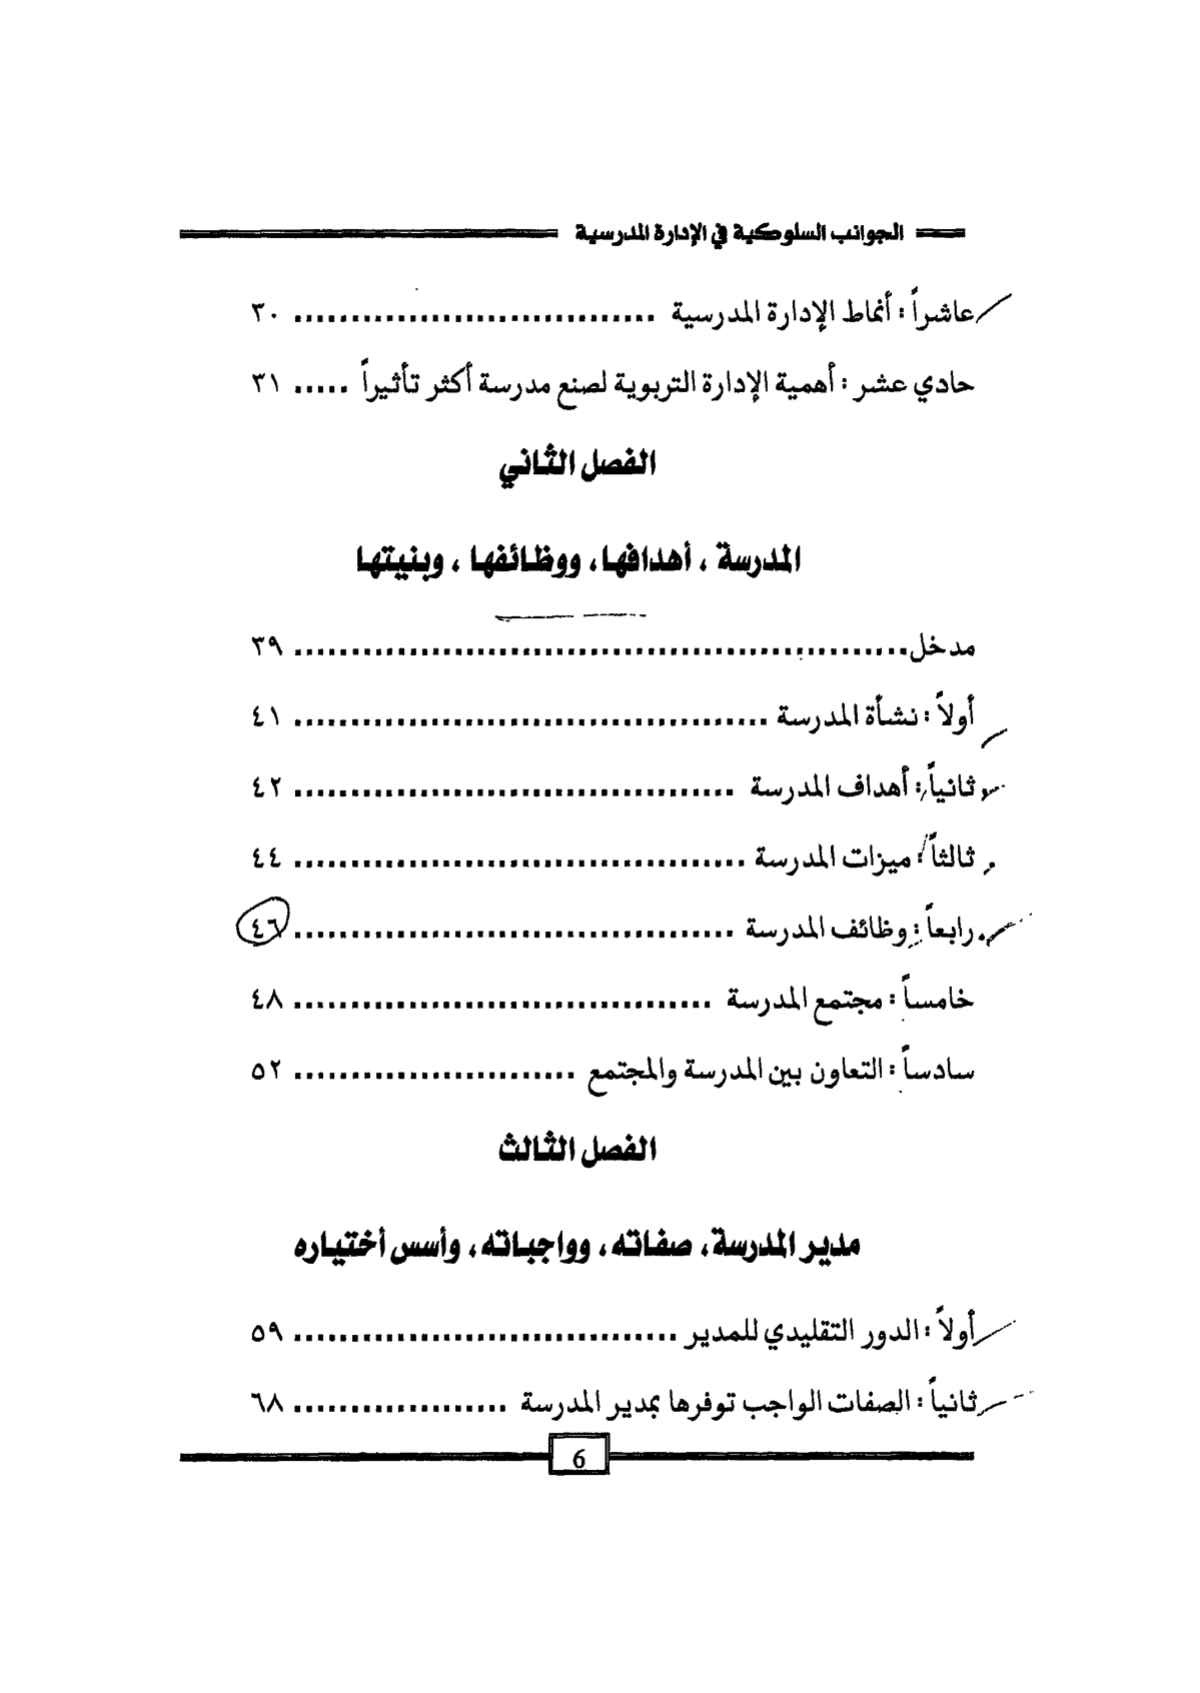 الجوانب السلوكية في الإدارة المدرسية
عاشراً : أنماط الإدارة المدرسية ................................ ٣٠
حادي عشر : أهمية الإدارة التربوية لصنع مدرسة أكثر تأثيراً ..... ٣١
الفصل الثاني
المدرسة ، أهدافها، ووظائفها ، وبنيتها
مدخل...................................................... ٣٩
أولاً : نشأة المدرسة .......................................... ٤١
ثانياً : أهداف المدرسة ....................................... ٤٢
ثالثاً : ميزات المدرسة ........................................ ٤٤
رابعاً : وظائف المدرسة ....................................... ٤٦
خامساً : مجتمع المدرسة ..................................... ٤٨
سادساً : التعاون بين المدرسة والمجتمع ......................... ٥٢
الفصل الثالث
مدير المدرسة، صفاته ، وواجباته ، وأسس أختياره
أولاً : الدور التقليدي للمدير .................................. ٥٩
ثانياً : الصفات الواجب توفرها بمدير المدرسة ................... ٦٨
6